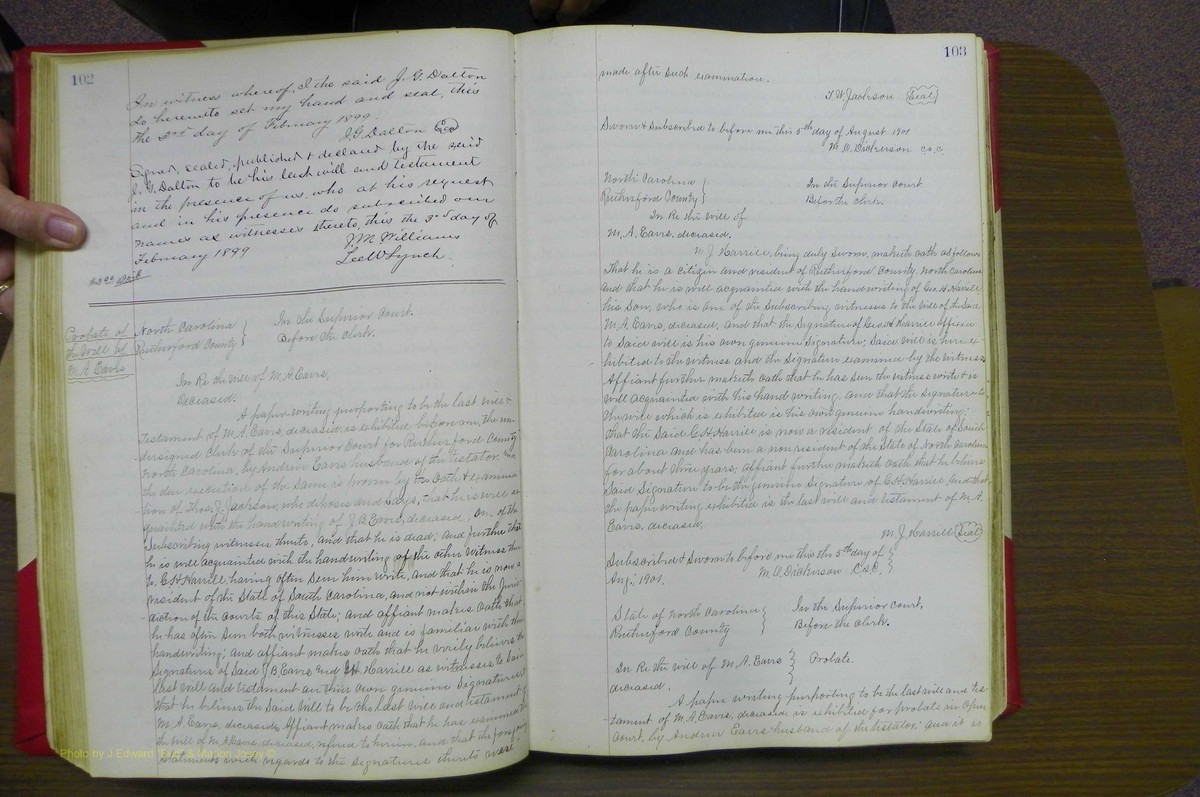 102
In witness whereof, I the said J. G. Dalton
do hereunto set my hand and seal, this
the 3rd day of February 1899.
J. G. Dalton Seal
Signed, sealed, published & declared by the said
J. G. Dalton to be his last will and testament
in the presence of us, who at his request
and in his presence do subscribed our
names as witnesses thereto, this the 3rd day of
February 1899
J. M. Williams
Lee W Lynch.
Probate of
the Will of
M. A. Eavs
North Carolina
Rutherford County
In the Superior Court.
Before the Clerk.
In Re the will of M. A. Eavs,
Deceased.
A paper writing purporting to be the last will &
Testament of M. A. Eavs, deceased, is exhibited before me, the un-
-dersigned Clerk of the Superior Court for Rutherford County
North Carolina, by Andrew Eavs husband of the testator. And
the due execution of the same is proven by the oath & examina-
tion of Thos. J. Jackson, who deposes and says, that he is well ac-
quainted with the hand writing of J B Eavs, deceased, one of the
Subscribing witnesses thereto, and that he is dead; and further that
he is well acquainted with the handwriting of the other witness there
to G. H. Harrill having often seen him write, and that he is now a
resident of the State of South Carolina, and not within the Juris-
-diction of the courts of this State; and affiant makes oath that
he has often seen both witnesses write and is familiar with their
handwriting; and affiant makes oath that he verily believes the
Signatures of Said J B Eavs and G H Harrill as witnesses to said
last will and testament are their own genuine signatures and
that he believes the Said will to be the last will and testament of
M. A. Eavs, deceased, Affiant makes oath that he has examined
the will of M. A. Eavs, deceased, referred to herein, and that the foregoing
Statements with regards to the Signatures thereto were
Photo by J Edward "Ned" & Marion Josey ©
103
made after such examination.
T. W. Jackson Seal
Sworn & Subscribed to before me this 5th day of August 1901
M. O. Dickerson C.S.C.
North Carolina
Rutherford County
In the Superior Court
Before the Clerk.
In Re the will of
M. A. Eavs, deceased.
M. J. Harrill, being duly sworn, maketh oath as follows
That he is a citizen and resident of Rutherford County, North Carolina
and that he is well acquainted with the handwriting of Geo. H. Harrill
his Son, who is one of the Subscribing witnesses to the will of the said
M. A. Eavs, deceased, and that the Signature of Geo. H Harrill affixed
to Said will is his own genuine Signature; Said will is here ex-
-hibited to the witness and the Signature examined by the witness
Affiant further maketh oath that he has seen the witness write & is
well acquainted with his hand writing, and that the Signature to
the will which is exhibited is his own genuine handwriting;
that the Said G. H. Harrill is now a resident of the State of South
Carolina and has been a non resident of the State of North Carolina
for about three years; affiant further maketh oath that he believes
Said Signature to be the genuine Signature of G H Harrill and that
the paper writing exhibited is the last will and testament of M. A.
Eavs, deceased,
M. J. Harrill Seal
Subscribed & Sworn to before me this the 5th day of
Aug. 1901,
M. O. Dickerson C.S.C.
State of North Carolina
Rutherford County
In the Superior Court,
Before the Clerk.
In Re the will of M. A. Eavs
deceased.
Probate.
A paper writing purporting to be the last will and tes-
-tament of M. A. Eavs, deceased, is exhibited for probate in open
Court, by Andrew Eavs husband of the testator, and it is